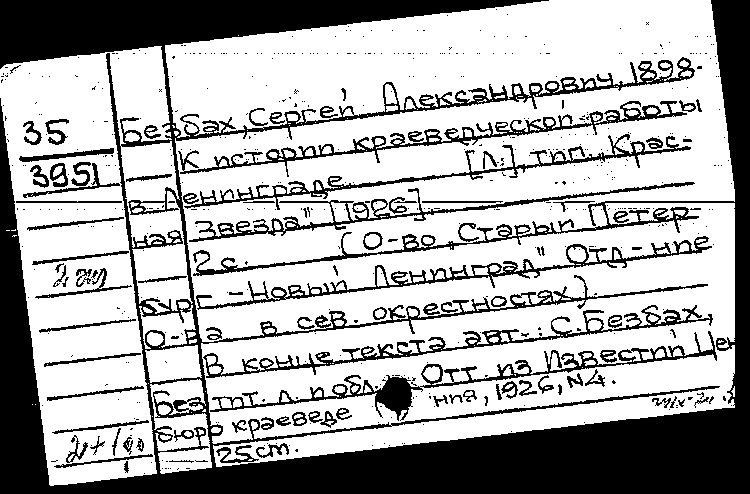 35
3951
2 экз
2+1ф
Безбах, Сергей Александрович, 1898-
К истории краеведческой работы
в Ленинграде. [Л.], тип. „Крас-
ная Звезда", [1926].
2 с. (О-во „Старый Петер-
бург – Новый Ленинград" Отд-ние
О-ва в сев. окрестностях).
В конце текста авт.: С. Безбах,
Без тит. л. и обл. Отт. из Известий Цен
бюро краеведе ния, 1926, N4.
25 cm.